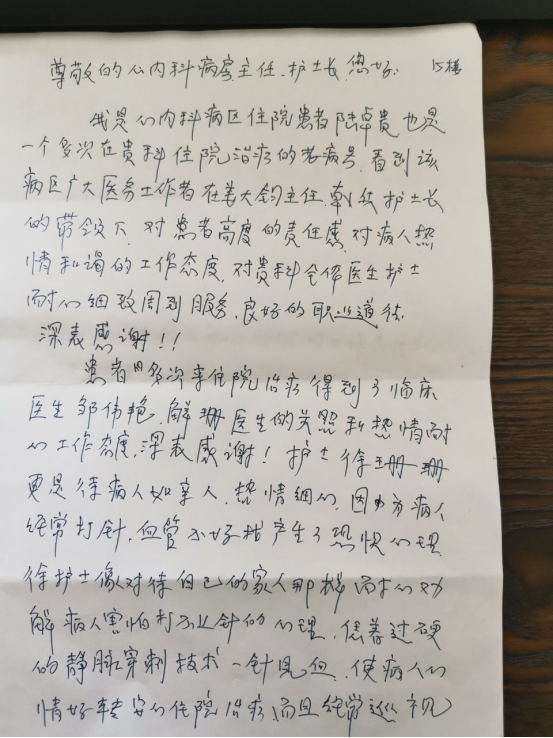 尊敬的心内科病房主任.护士长.您好: 15楼
我是心内科病区住院患者陆卓贵也是
一个多次在贵科住院治疗的老病号.看到该
病区广大医务工作者在姜大钧主任.护士长
的带领下.对患者高度的责任感.对病人热
情和谐的工作态度.对贵科全体医生护士
耐心细致周到服务.良好的职业道德
深表感谢!!
患者因多次来住院治疗得到了临床
医生邹伟艳.解珊医生的关照和热情耐
心工作态度.深表感谢!护士徐珊珊
更是待病人如亲人.热情细心.因为病人
经常打针.血管不好找产生了恐惧心理
徐护士像对待自己的家人那样耐心劝
解病人害怕打不上针的心理.凭着过硬
的静脉穿刺技术一针见血.使病人心
情好转安心住院治疗.而且经常巡视